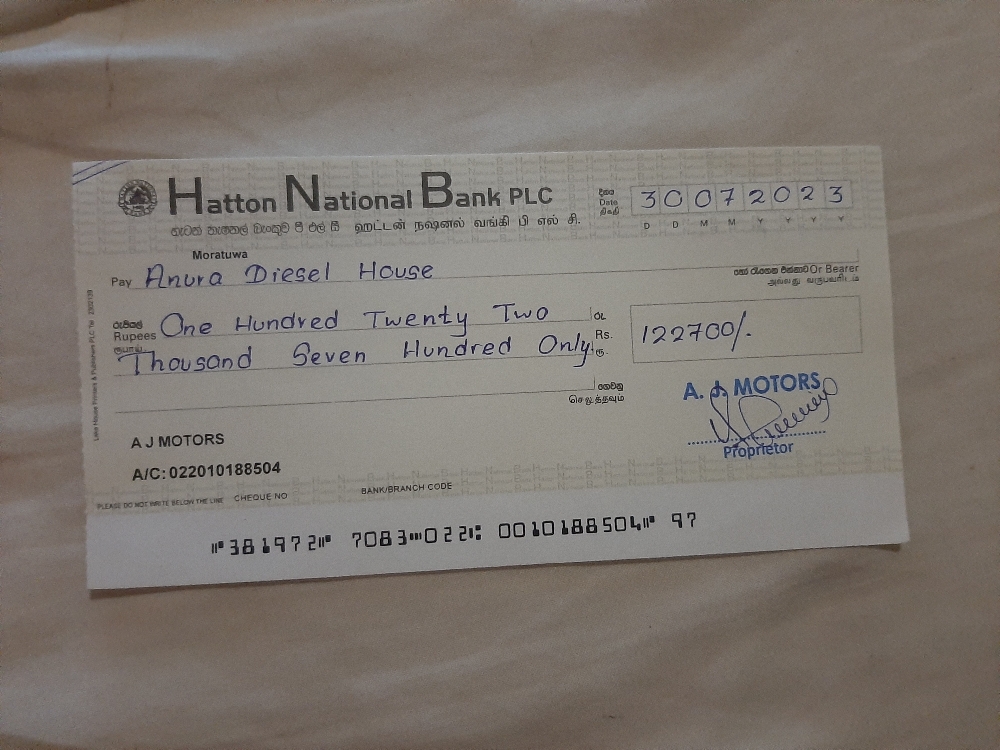 Hatton National Bank PLC
හැටන් නැෂනල් බැංකුව පී එල් සී ஹட்டன் நஷனல் வங்கி பி எல் சி.
දිනය
Date
திகதி
30072023
D D M M Y Y Y Y
Moratuwa
Pay Anura Diesel House
හෝ රැගෙන එන්නාට Or Bearer
அல்லது
රුපියල්
Rupees
ரூபாய்
One Hundred Twenty Two
Thousand Seven Hundred Only
රු.
Rs.
ரூ.
122700/-
ගෙවනු
செலுத்தவும்
A. J. MOTORS
Proprietor
A J MOTORS
A/C: 022010188504
PLEASE DO NOT WRITE BELOW THE LINE CHEQUE NO BANK/BRANCH CODE
⑈381972⑈ 7083⑉022⑆ 0010188504⑈ 97
Lake House Printers & Publishers PLC